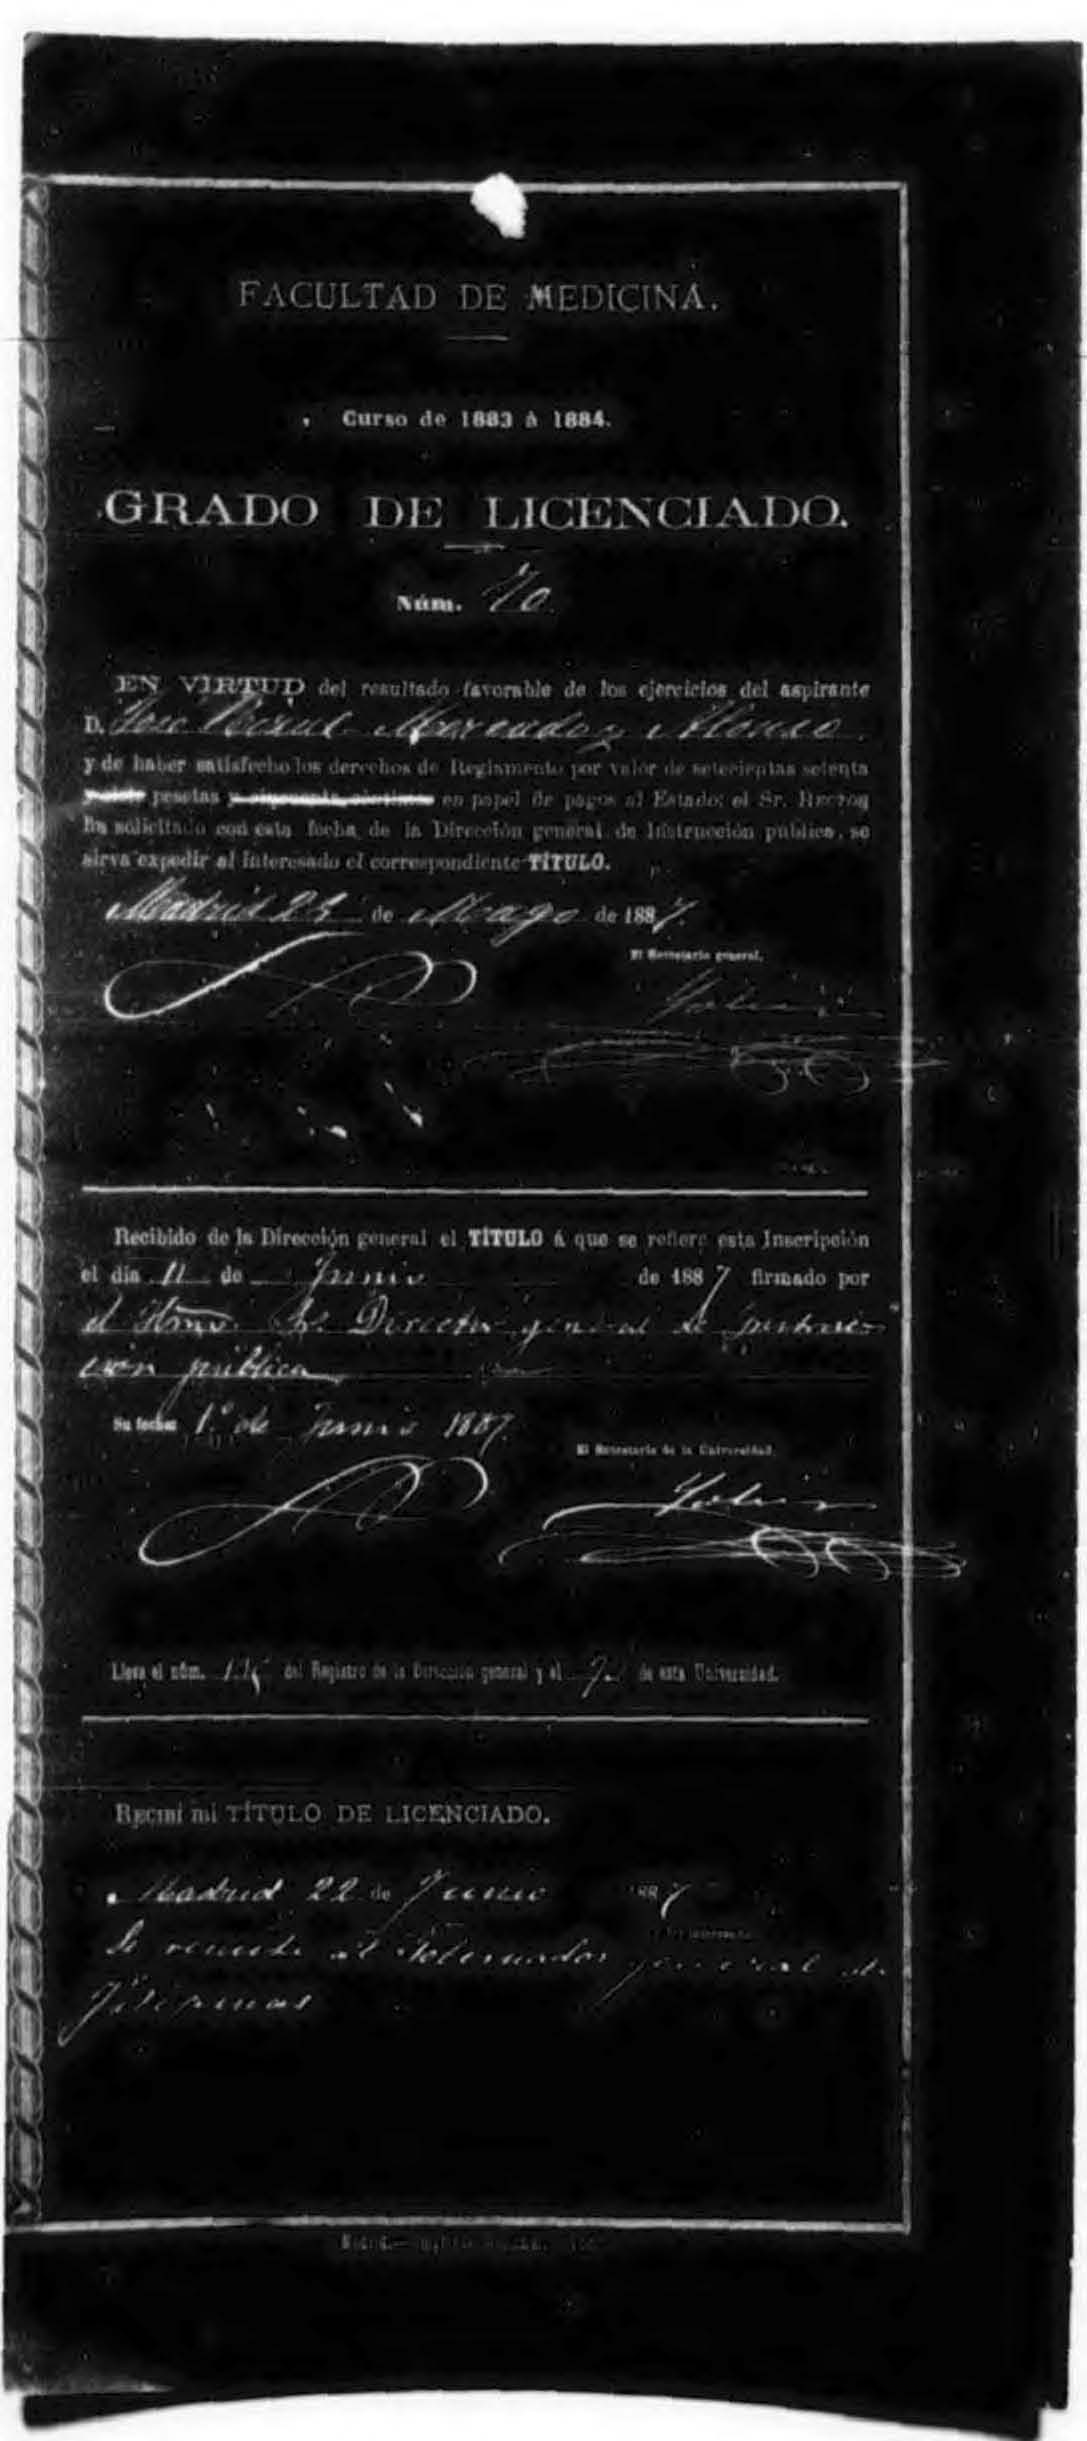 FACULTAD DE MEDICINA.
Curso de 1883 à 1884.
GRADO DE LICENCIADO.
Núm. 70
EN VIRTUD del resultado favorable de los ejercicios del aspirante
D. Jose Rizal Mercado y Alonso
y de haber satisfecho los derechos de Reglamento por valor de setecientas setenta
pesetas en papel de pagos al Estado; el Sr. RECTOR
ha solicitado con esta fecha de la Dirección general de Instrucción pública, se
sirva expedir al interesado el correspondiente TÍTULO.
Madrid de Mayo de 1887.
El Secretario general,
Recibido de la Dirección general el TÍTULO á que se refiere esta Inscripción
el día 11 de Junio de 1887 firmado por
el Director general de Instruc-
ción pública
Su fecha: 1.º de Junio 1887.
El Secretario de la Universidad,
Lleva el núm. del Registro de la Dirección general y el de esta Universidad.
RECIBÍ mi TÍTULO DE LICENCIADO.
Madrid 22 de Junio 1887
Se remite al Gobernador general de
Filipinas